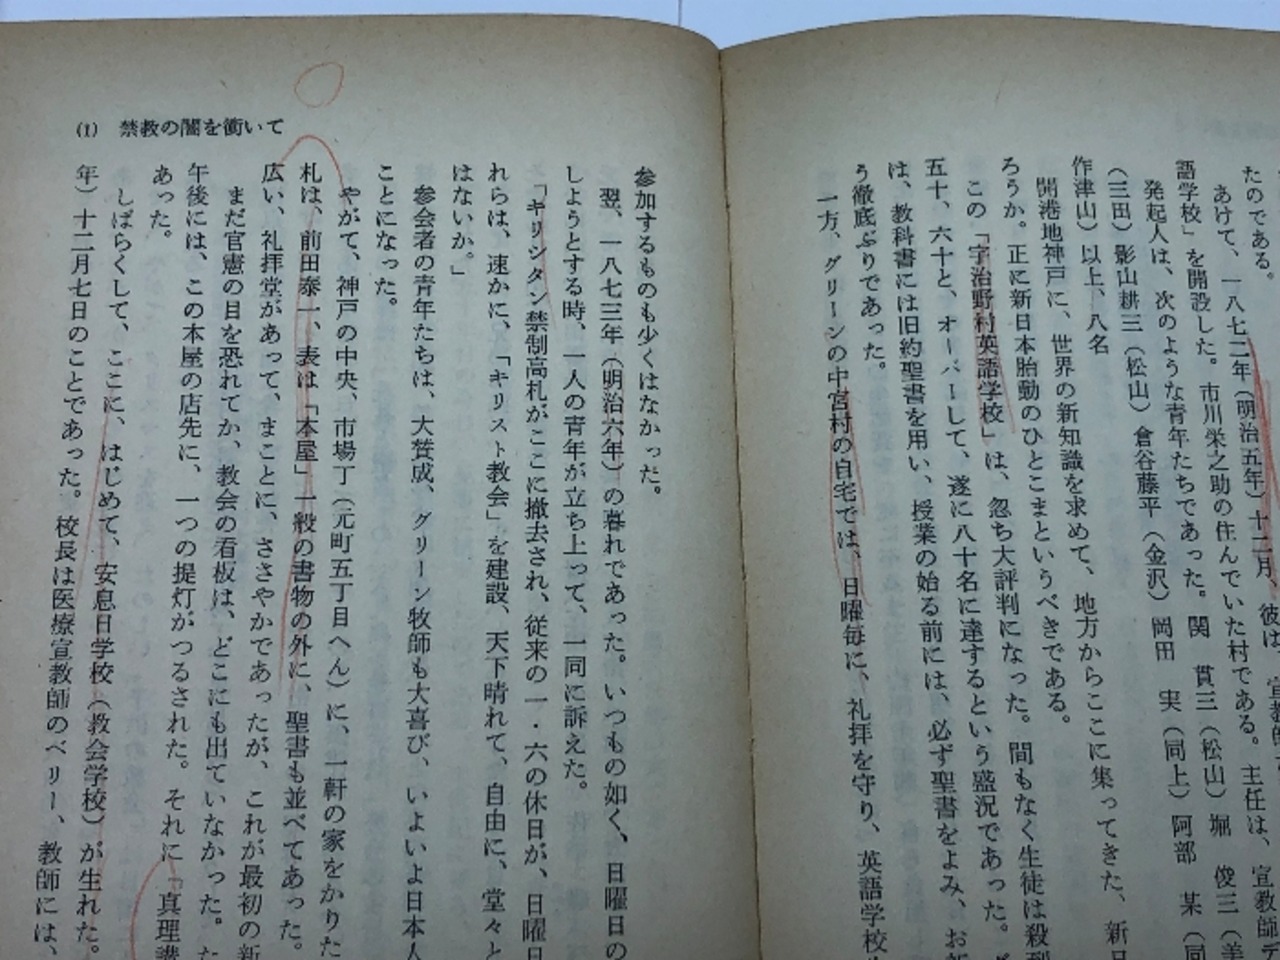 たのである。
あけて、一八七二年（明治五年）十二月、彼は、宣教師
語学校」を開設した。市川栄之助の住んでいた村である。主任は、宣教師デ
発起人は、次のような青年たちであった。関　貫三（松山）堀　俊三（美
（三田）影山耕三（松山）倉谷藤平（金沢）岡田　実（同上）阿部　某（同
作津山）以上、八名
開港地神戸に、世界の新知識を求めて、地方からここに集ってきた、新日
ろうか。正に新日本胎動のひとこまというべきである。
この「宇治野村英語学校」は、忽ち大評判になった。間もなく生徒は殺到
五十、六十と、オーバーして、遂に八十名に達するという盛況であった。グ
は、教科書には旧約聖書を用い、授業の始る前には、必ず聖書をよみ、お祈
う徹底ぶりであった。
一方、グリーンの中宮村の自宅では、日曜毎に、礼拝を守り、英語学校
参加するものも少くはなかった。
翌、一八七三年（明治六年）の暮れであった。いつもの如く、日曜日の
しようとする時、一人の青年が立ち上って、一同に訴えた。
「キリシタン禁制高札がここに撤去され、従来の一・六の休日が、日曜日
れらは、速かに、「キリスト教会」を建設、天下晴れて、自由に、堂々と
はないか。」
参会者の青年たちは、大賛成、グリーン牧師も大喜び、いよいよ日本人
ことになった。
やがて、神戸の中央、市場丁（元町五丁目へん）に、一軒の家をかりた
札は、前田泰一、表は「本屋」一般の書物の外に、聖書も並べてあった。
広い、礼拝堂があって、まことに、ささやかであったが、これが最初の新
まだ官憲の目を恐れてか、教会の看板は、どこにも出ていなかった。た
午後には、この本屋の店先に、一つの提灯がつるされた。それに「真理講
あった。
しばらくして、ここに、はじめて、安息日学校（教会学校）が生れた。
年）十二月七日のことであった。校長は医療宣教師のベリー、教師には、
(1)　禁教の闇を衝いて